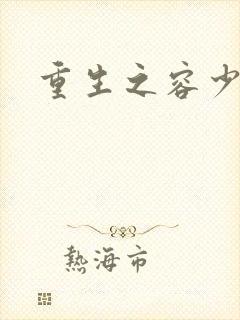 重生之容少
熱海市